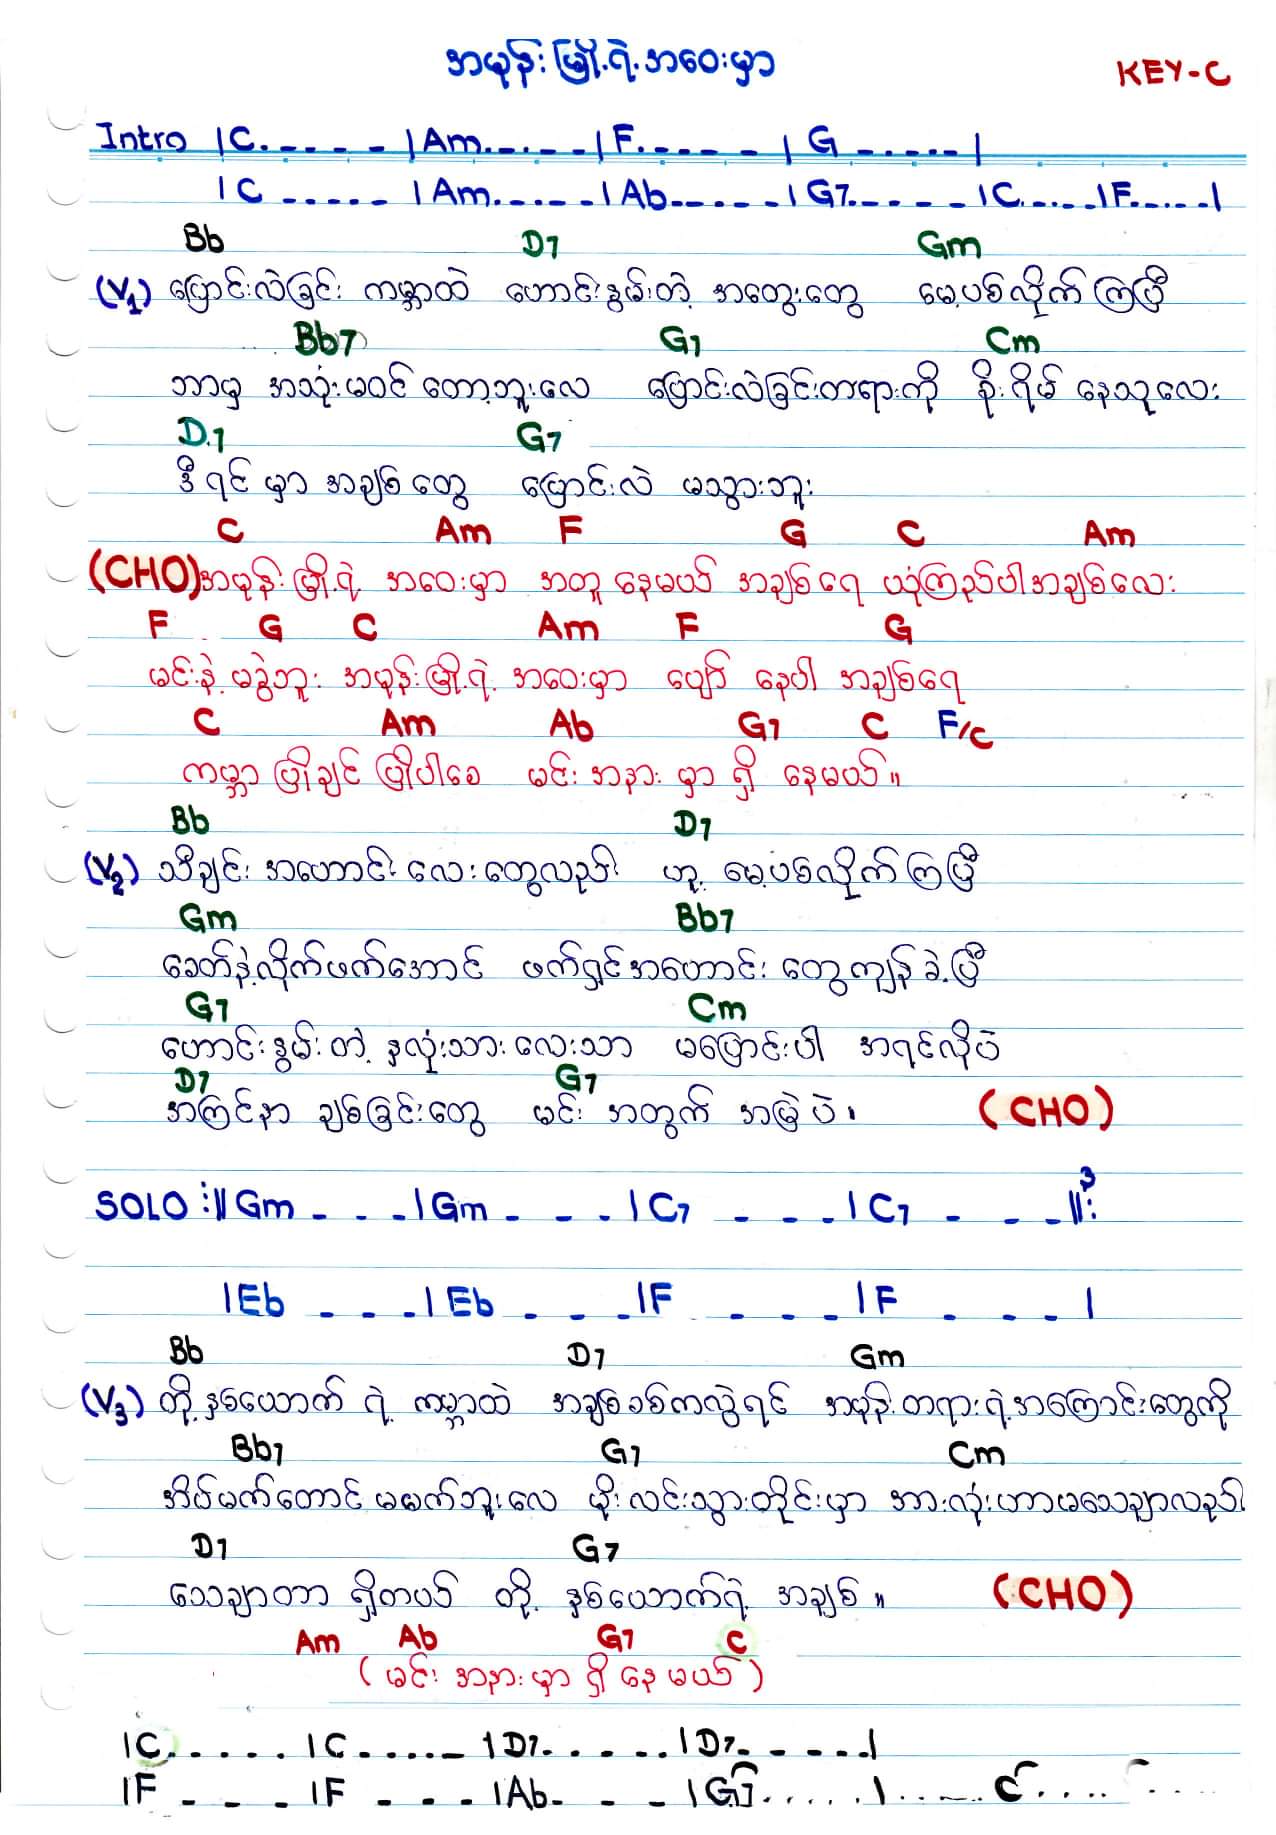 အမုန်းမြို့ရဲ့အဝေးမှာ
KEY-C
Intro |C. - - - - - |Am. - - . - - - |F. - - - - - | G - - . - - - |
|C - - - - - |Am. - - . - - |Ab - - - . - - |G7. - - - - |C. - . - - |F. - - . - |
Bb D7 Gm
(V1) ပြောင်းလဲခြင်း ကမ္ဘာထဲ ဟောင်းနွမ်းတဲ့ အတွေးတွေ မေ့ပစ်လိုက်ကြပြီ
Bb7 G7 Cm
ဘာမှ အသုံးမဝင် တော့ဘူးလေ ပြောင်းလဲခြင်းတရားကို စိုးရိမ် နေသူလေး
D7 G7
ဒီရင် မှာ အချစ်တွေ ပြောင်းလဲ မသွားဘူး
C Am F G C Am
(CHO) အမုန်းမြို့ရဲ့ အဝေးမှာ အတူနေမယ် အချစ်ရေ ယုံကြည်ပါအချစ်လေး
F G C Am F G
မင်းနဲ့ မခွဲဘူး အမုန်းမြို့ရဲ့ အဝေးမှာ ပျော် နေပါ အချစ်ရေ
C Am Ab G7 C F/C
ကမ္ဘာ ပြိုချင် ပြိုပါစေ မင်း အနား မှာ ရှိ နေမယ်။
Bb D7
(V2) သီချင်း အဟောင်း လေးတွေလည်း ဟူ့ မေ့ပစ်လိုက်ကြပြီ
Gm Bb7
ခေတ်နဲ့လိုက်ဖက်အောင် ဖက်ရှင်အဟောင်း တွေကျန်ခဲ့ပြီ
G7 Cm
ဟောင်းနွမ်းတဲ့ နှလုံးသားလေးသာ မပြောင်းပါ အရင်လိုပဲ
D7 G7
အကြင်နာ ချစ်ခြင်းတွေ မင်း အတွက် အမြဲပဲ။ (CHO)
SOLO :|| Gm - - - |Gm - - - |C7 - - - |C7 - - - ||: 3
|Eb - - - |Eb - - - |F - - - |F - - - |
Bb D7 Gm
(V3) တို့နှစ်ယောက် ရဲ့ ကမ္ဘာထဲ အချစ်စစ်ကလွဲရင် အမုန်းတရားရဲ့အကြောင်းတွေကို
Bb7 G7 Cm
အိပ်မက်တောင် မမက်ဘူးလေ မိုးလင်းသွားတိုင်းမှာ အားလုံးဟာမသေချာလည်း
D7 G7
သေချာတာ ရှိတယ် တို့ နှစ်ယောက်ရဲ့ အချစ်။ (CHO)
Am Ab G7 C
( မင်း အနားမှာ ရှိ နေ မယ် )
|C. - - - - - |C - - - - - |D7. - - - - |D7. - - - - |
|F - - - |F - - - |Ab. - - - |G7. . . . . | . . . . . C . . . . . . . .